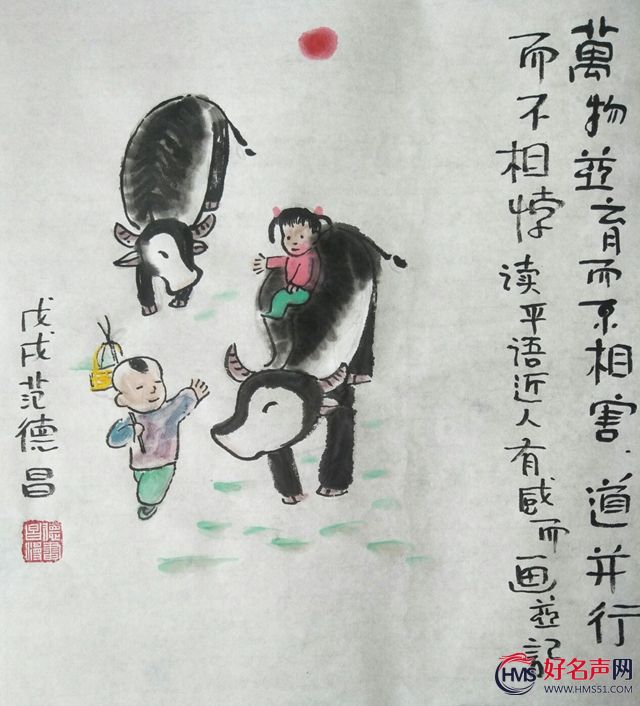 萬物並育而不相害.道并行
而不相悖读平语近人有感而画並記
戊戌范德昌
HMS
好名声网
WWW.HMS51.COM